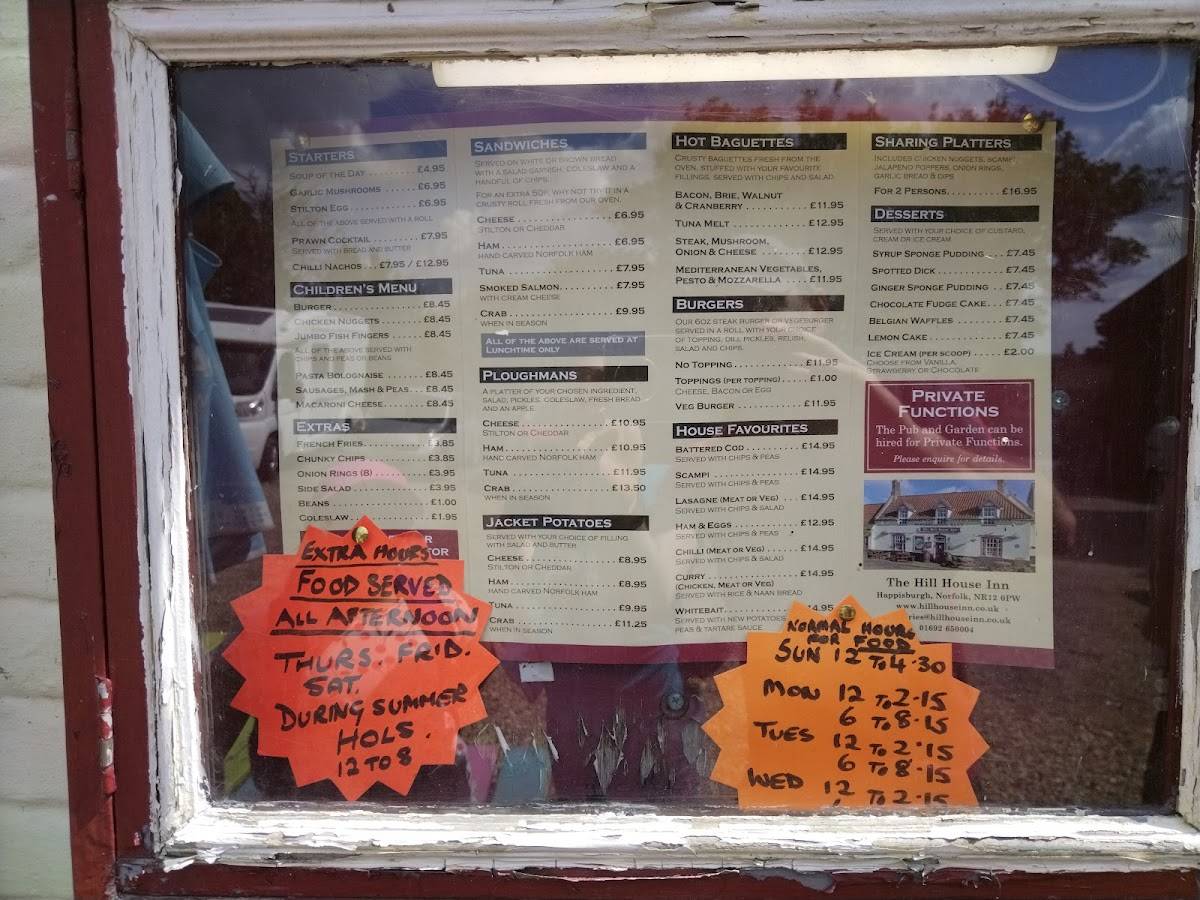 STARTERS
SOUP OF THE DAY £4.95
GARLIC MUSHROOMS £6.95
STILTON EGG £6.95
ALL OF THE ABOVE SERVED WITH A ROLL
PRAWN COCKTAIL £7.95
SERVED WITH BREAD AND BUTTER
CHILLI NACHOS £7.95 / £12.95
CHILDREN'S MENU
BURGER £8.45
CHICKEN NUGGETS £8.45
JUMBO FISH FINGERS £8.45
ALL OF THE ABOVE SERVED WITH
CHIPS AND PEAS OR BEANS
PASTA BOLOGNAISE £8.45
SAUSAGES, MASH & PEAS £8.45
MACARONI CHEESE £8.45
EXTRAS
FRENCH FRIES £3.85
CHUNKY CHIPS £3.85
ONION RINGS (8) £3.95
SIDE SALAD £3.95
BEANS £1.00
COLESLAW £1.95
SANDWICHES
SERVED ON WHITE OR BROWN BREAD
WITH A SALAD GARNISH, COLESLAW AND A
HANDFUL OF CHIPS.
FOR AN EXTRA 50P, WHY NOT TRY IT IN A
CRUSTY ROLL FRESH FROM OUR OVEN.
CHEESE £6.95
STILTON OR CHEDDAR
HAM £6.95
HAND-CARVED NORFOLK HAM
TUNA £7.95
SMOKED SALMON £7.95
WITH CREAM CHEESE
CRAB £9.95
WHEN IN SEASON
ALL OF THE ABOVE ARE SERVED AT
LUNCHTIME ONLY
PLOUGHMANS
A PLATTER OF YOUR CHOSEN INGREDIENT,
SALAD, PICKLES, COLESLAW, FRESH BREAD
AND AN APPLE
CHEESE £10.95
STILTON OR CHEDDAR
HAM £10.95
HAND CARVED NORFOLK HAM
TUNA £11.95
CRAB £13.50
WHEN IN SEASON
JACKET POTATOES
SERVED WITH YOUR CHOICE OF FILLING
WITH SALAD AND BUTTER
CHEESE £8.95
STILTON OR CHEDDAR
HAM £8.95
HAND CARVED NORFOLK HAM
TUNA £9.95
CRAB £11.25
WHEN IN SEASON
HOT BAGUETTES
CRUSTY BAGUETTES FRESH FROM THE
OVEN, STUFFED WITH YOUR FAVOURITE
FILLINGS, SERVED WITH CHIPS AND SALAD
BACON, BRIE, WALNUT
& CRANBERRY £11.95
TUNA MELT £12.95
STEAK, MUSHROOM,
ONION & CHEESE £12.95
MEDITERRANEAN VEGETABLES,
PESTO & MOZZARELLA £11.95
BURGERS
OUR 6OZ STEAK BURGER OR VEGEBURGER
SERVED IN A ROLL WITH YOUR CHOICE
OF TOPPING, DILL PICKLES, RELISH,
SALAD AND CHIPS.
NO TOPPING £11.95
TOPPINGS (PER TOPPING) £1.00
CHEESE, BACON OR EGG
VEG BURGER £11.95
HOUSE FAVOURITES
BATTERED COD £14.95
SERVED WITH CHIPS & PEAS
SCAMPI £14.95
SERVED WITH CHIPS & PEAS
LASAGNE (MEAT OR VEG) £14.95
SERVED WITH CHIPS & SALAD
HAM & EGGS £12.95
SERVED WITH CHIPS & PEAS
CHILLI (MEAT OR VEG) £14.95
SERVED WITH CHIPS & SALAD
CURRY £14.95
(CHICKEN, MEAT OR VEG)
SERVED WITH RICE & NAAN BREAD
WHITEBAIT 4.95
SERVED WITH NEW POTATOES
PEAS & TARTARE SAUCE
SHARING PLATTERS
INCLUDES CHICKEN NUGGETS, SCAMPI,
JALAPENO POPPERS, ONION RINGS,
GARLIC BREAD & DIPS
FOR 2 PERSONS £16.95
DESSERTS
SERVED WITH YOUR CHOICE OF CUSTARD,
CREAM OR ICE CREAM
SYRUP SPONGE PUDDING £7.45
SPOTTED DICK £7.45
GINGER SPONGE PUDDING £7.45
CHOCOLATE FUDGE CAKE £7.45
BELGIAN WAFFLES £7.45
LEMON CAKE £7.45
ICE CREAM (PER SCOOP) £2.00
CHOOSE FROM VANILLA,
STRAWBERRY OR CHOCOLATE
PRIVATE
FUNCTIONS
The Pub and Garden can be
hired for Private Functions.
Please enquire for details.
The Hill House Inn
Happisburgh, Norfolk, NR12 6PW
www.hillhouseinn.co.uk
@hillhouseinn.co.uk
01692 650004
EXTRA HOURS
FOOD SERVED
ALL AFTERNOON
THURS. FRID.
SAT.
DURING SUMMER
HOLS.
12 TO 8
NORMAL HOURS
FOR FOOD
SUN 12 TO 4.30
MON 12 TO 2.15
6 TO 8.15
TUES 12 TO 2.15
6 TO 8.15
WED 12 TO 2.15